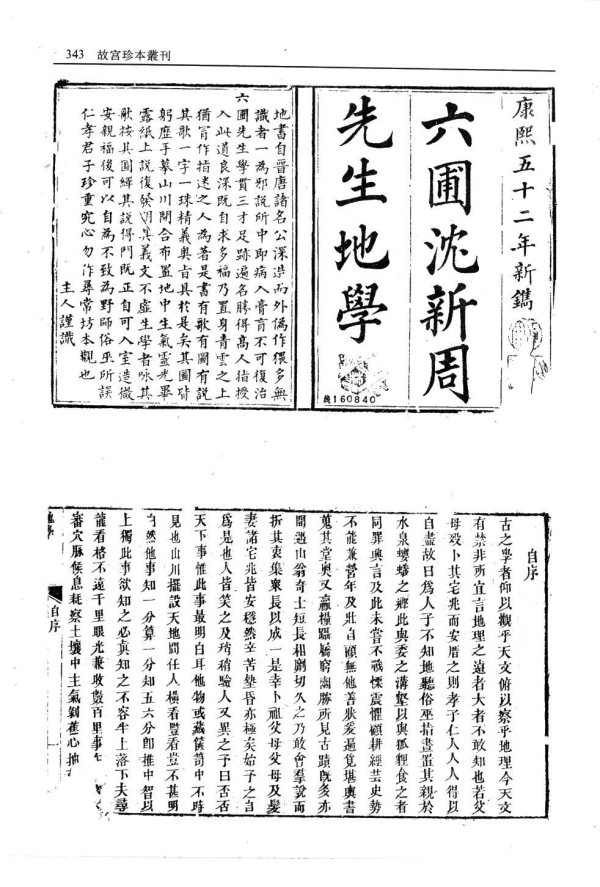 343 故宮珍本叢刊
康熙五十二年新鐫
六圃沈新周
先生地學
地書自晉唐諸名公深造而外偽作猥多無
識者一為邪說所中即病入膏肓不可復治
六圃先生學貫三才足跡遍名勝得高人指授
入此道良深既自求多福乃置身青雲之上
猶肯作指迷之人為著是書有歌有圖有說
其歌一字一珠精義奧旨具於是矣其圖皆
躬歷手摹山川開合布置地中生氣靈光畢
露紙上說復發明其義文不虛生學者咏其
歌按其圖繹其說得門既正自可入室造微
安親福後可以自為不致為野師俗巫所誤
仁孝君子珍重究心勿作尋常坊本觀也
主人謹識
线160840
自序
古之學者仰以觀乎天文俯以察乎地理今天文
有禁非所宜言地理之遠者大者不敢知也若父
母歿卜其宅兆而安厝之則孝子仁人人人得以
自盡故曰為人子不知地聽俗巫指畫置其親於
水泉螻蟠之鄉此與委之溝壑以與狐狸食之者
同罪興言及此未嘗不戰慄震懼顧耕經芸史勢
不能兼營年及壯自顧無他善狀爰遍覓堪輿書
蒐其堂奧又贏糧躡屩窮幽勝所見古蹟既多亦
間遇山翁奇士短長相劘切久之乃敢會羣說而
折其衷集衆長以成一是幸卜祖父母父母及髮
妻諸宅兆皆安穩然辛苦墊昏亦極矣始子之自
為是也人皆笑之及稍稍驗人又異之予曰否否
天下事惟此事最明白耳他物或藏篋笥中不時
見也山川擺設天地間任人橫看豎看豈不甚明
自然他事知一分算一分知五六分即推中智以
上獨此事欲知之必真知之不容半上落下夫尋
龍看格不遠千里眼光兼收數百里事
審穴脉候息耗察土壤中主氣剝舊心抽
自序